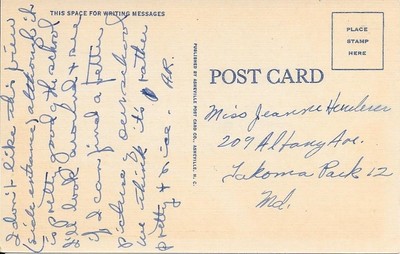 THIS SPACE FOR WRITING MESSAGES
I don't like this view
(side entrance) although it
is pretty good of the school
I'll look around & see
if I can find a better
picture of our school
we think it's rather
pretty & nice - AR.
PUBLISHED BY ASHEVILLE POST CARD CO., ASHEVILLE, N. C.
POST CARD
PLACE
STAMP
HERE
Miss Jeanne
209 Albany Ave.
Takoma Park 12
Md.